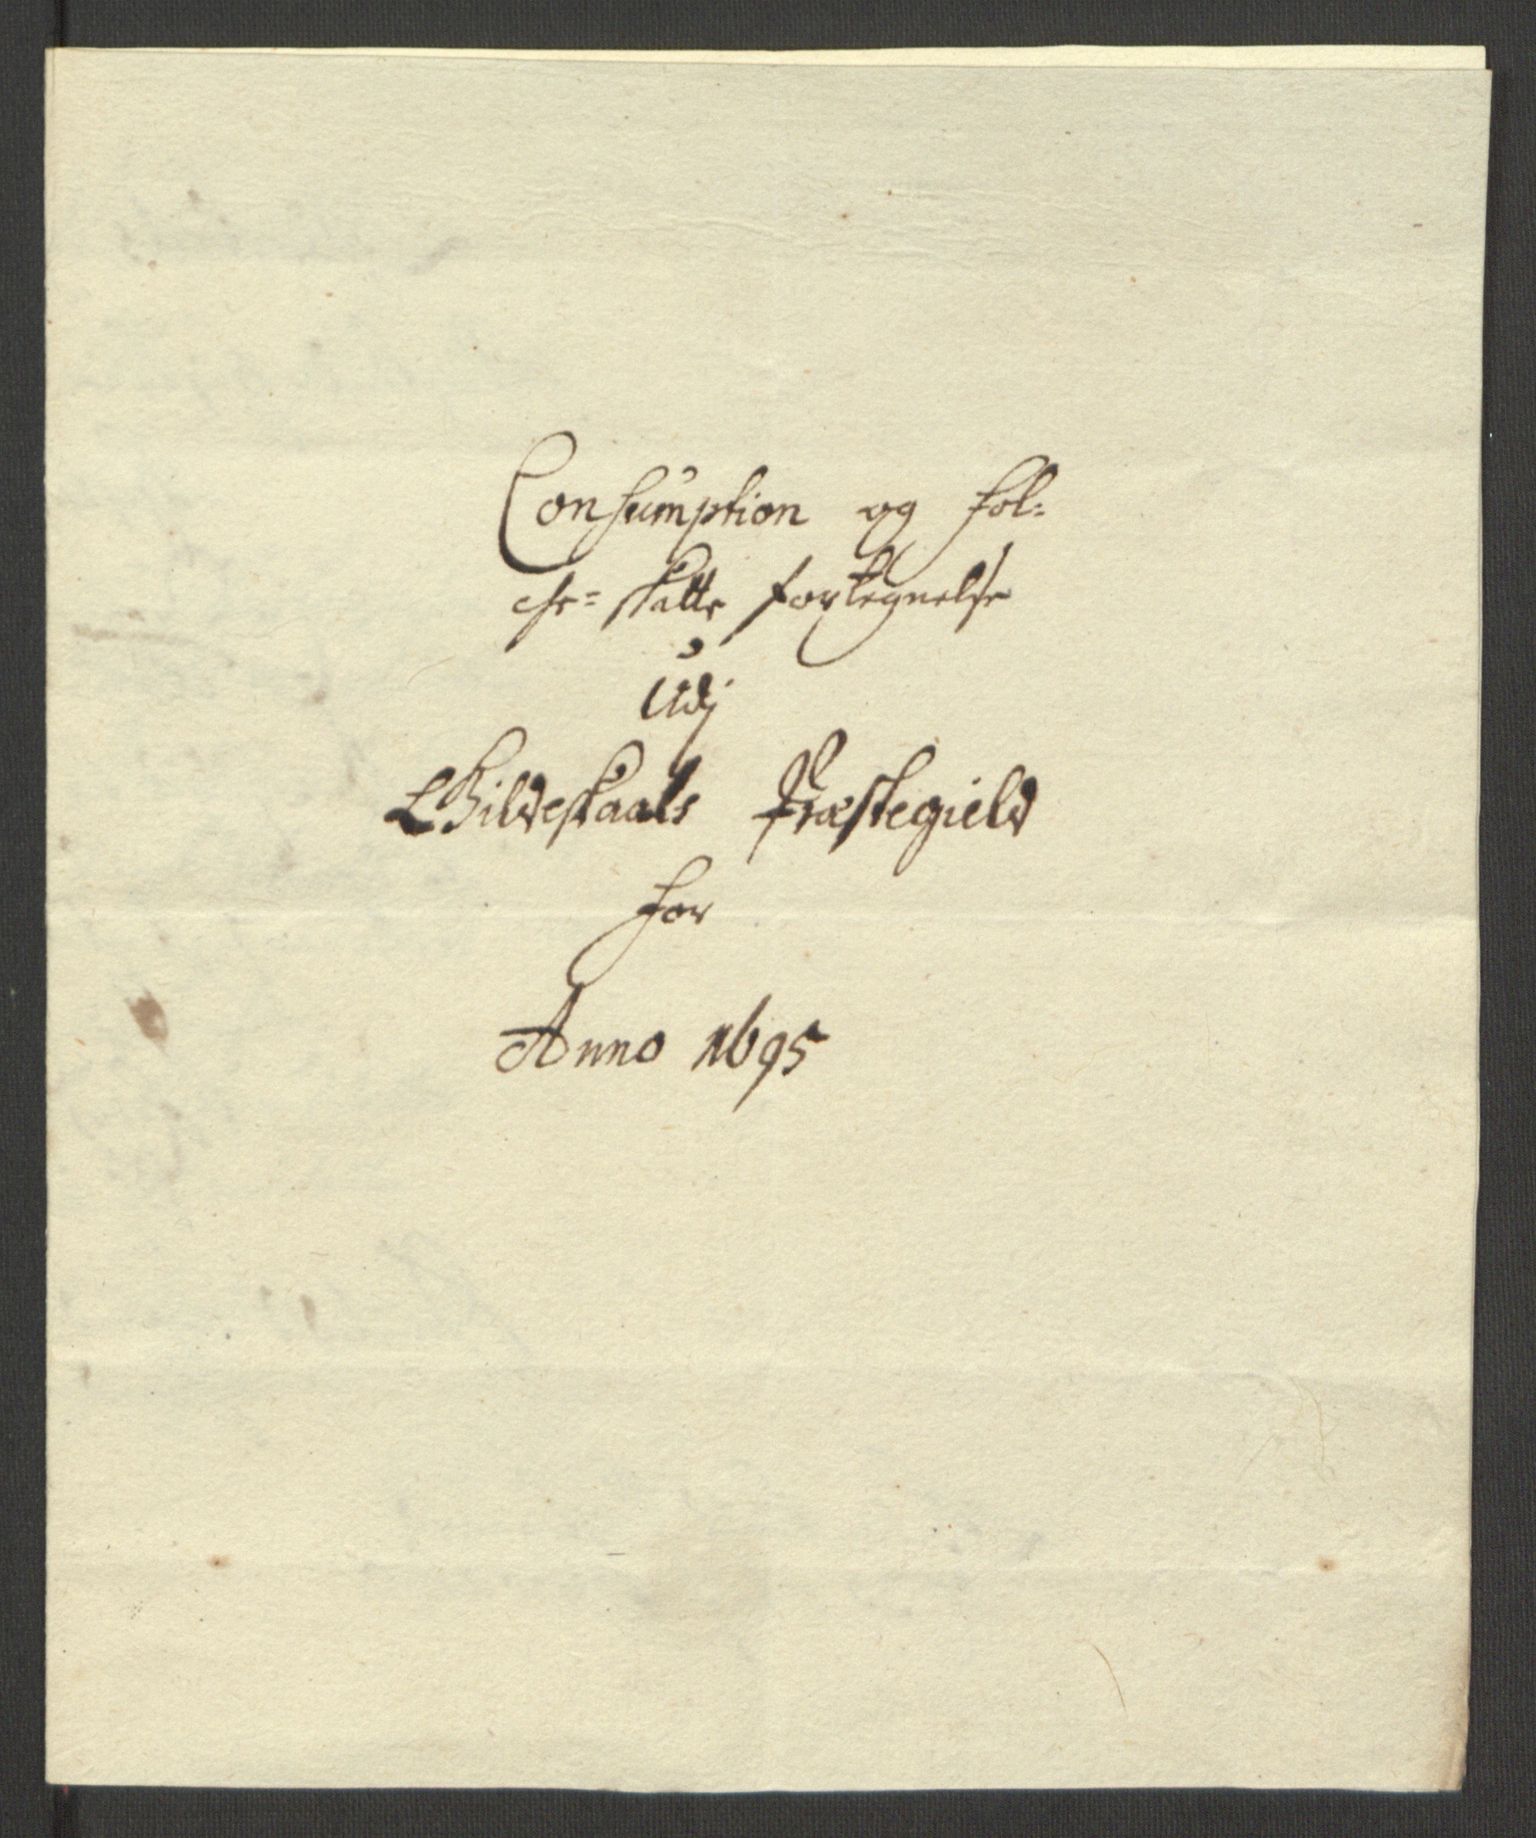 Consumption og fol-
che- skatte fortegnelse
Udj
Gildeskaals Præstegield
for
Anno 1695